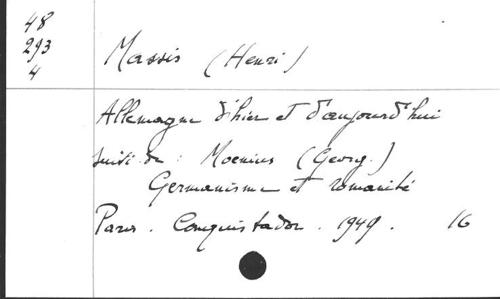 48
293
4
Massis (Henri)
Allemagne d'hier et d'aujourd'hui
suivi de : Moenius (Georg.)
Germanisme et romanité
Paris. Conquistador. 1949. 16